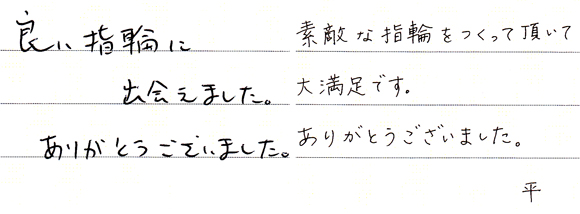 良い指輪に
出会えました。
ありがとうございました。
素敵な指輪をつくって頂いて
大満足です。
ありがとうございました。
平